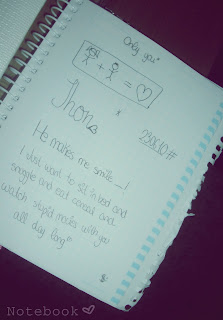 Only you"
+ = ♡
Jhon
230610 #
He makes me smile__!
I just want to sit in bed and
snuggle and eat cereal and
watch stupid movies with you
all day long"
Notebook ♡